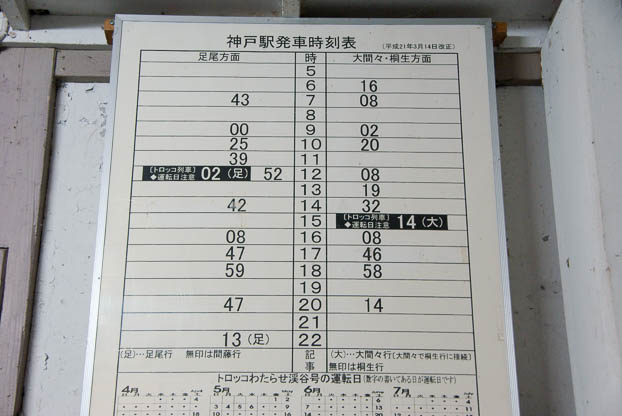 神戸駅発車時刻表 (平成21年3月14日改正)
足尾方面 時 大間々・桐生方面
5
6 16
43 7 08
8
00 9 02
25 10 20
39 11
【トロッコ列車】◆運転日注意 02(足) 52 12 08
13 19
42 14 32
15 【トロッコ列車】◆運転日注意 14(大)
08 16 08
47 17 46
59 18 58
19
47 20 14
21
13(足) 22
(足)…足尾行 無印は間藤行 記事 (大)…大間々行(大間々で桐生行に接続)
無印は桐生行
トロッコわたらせ渓谷号の運転日(数字の書いてある日が運転日です)
4月 5月 6月 7月